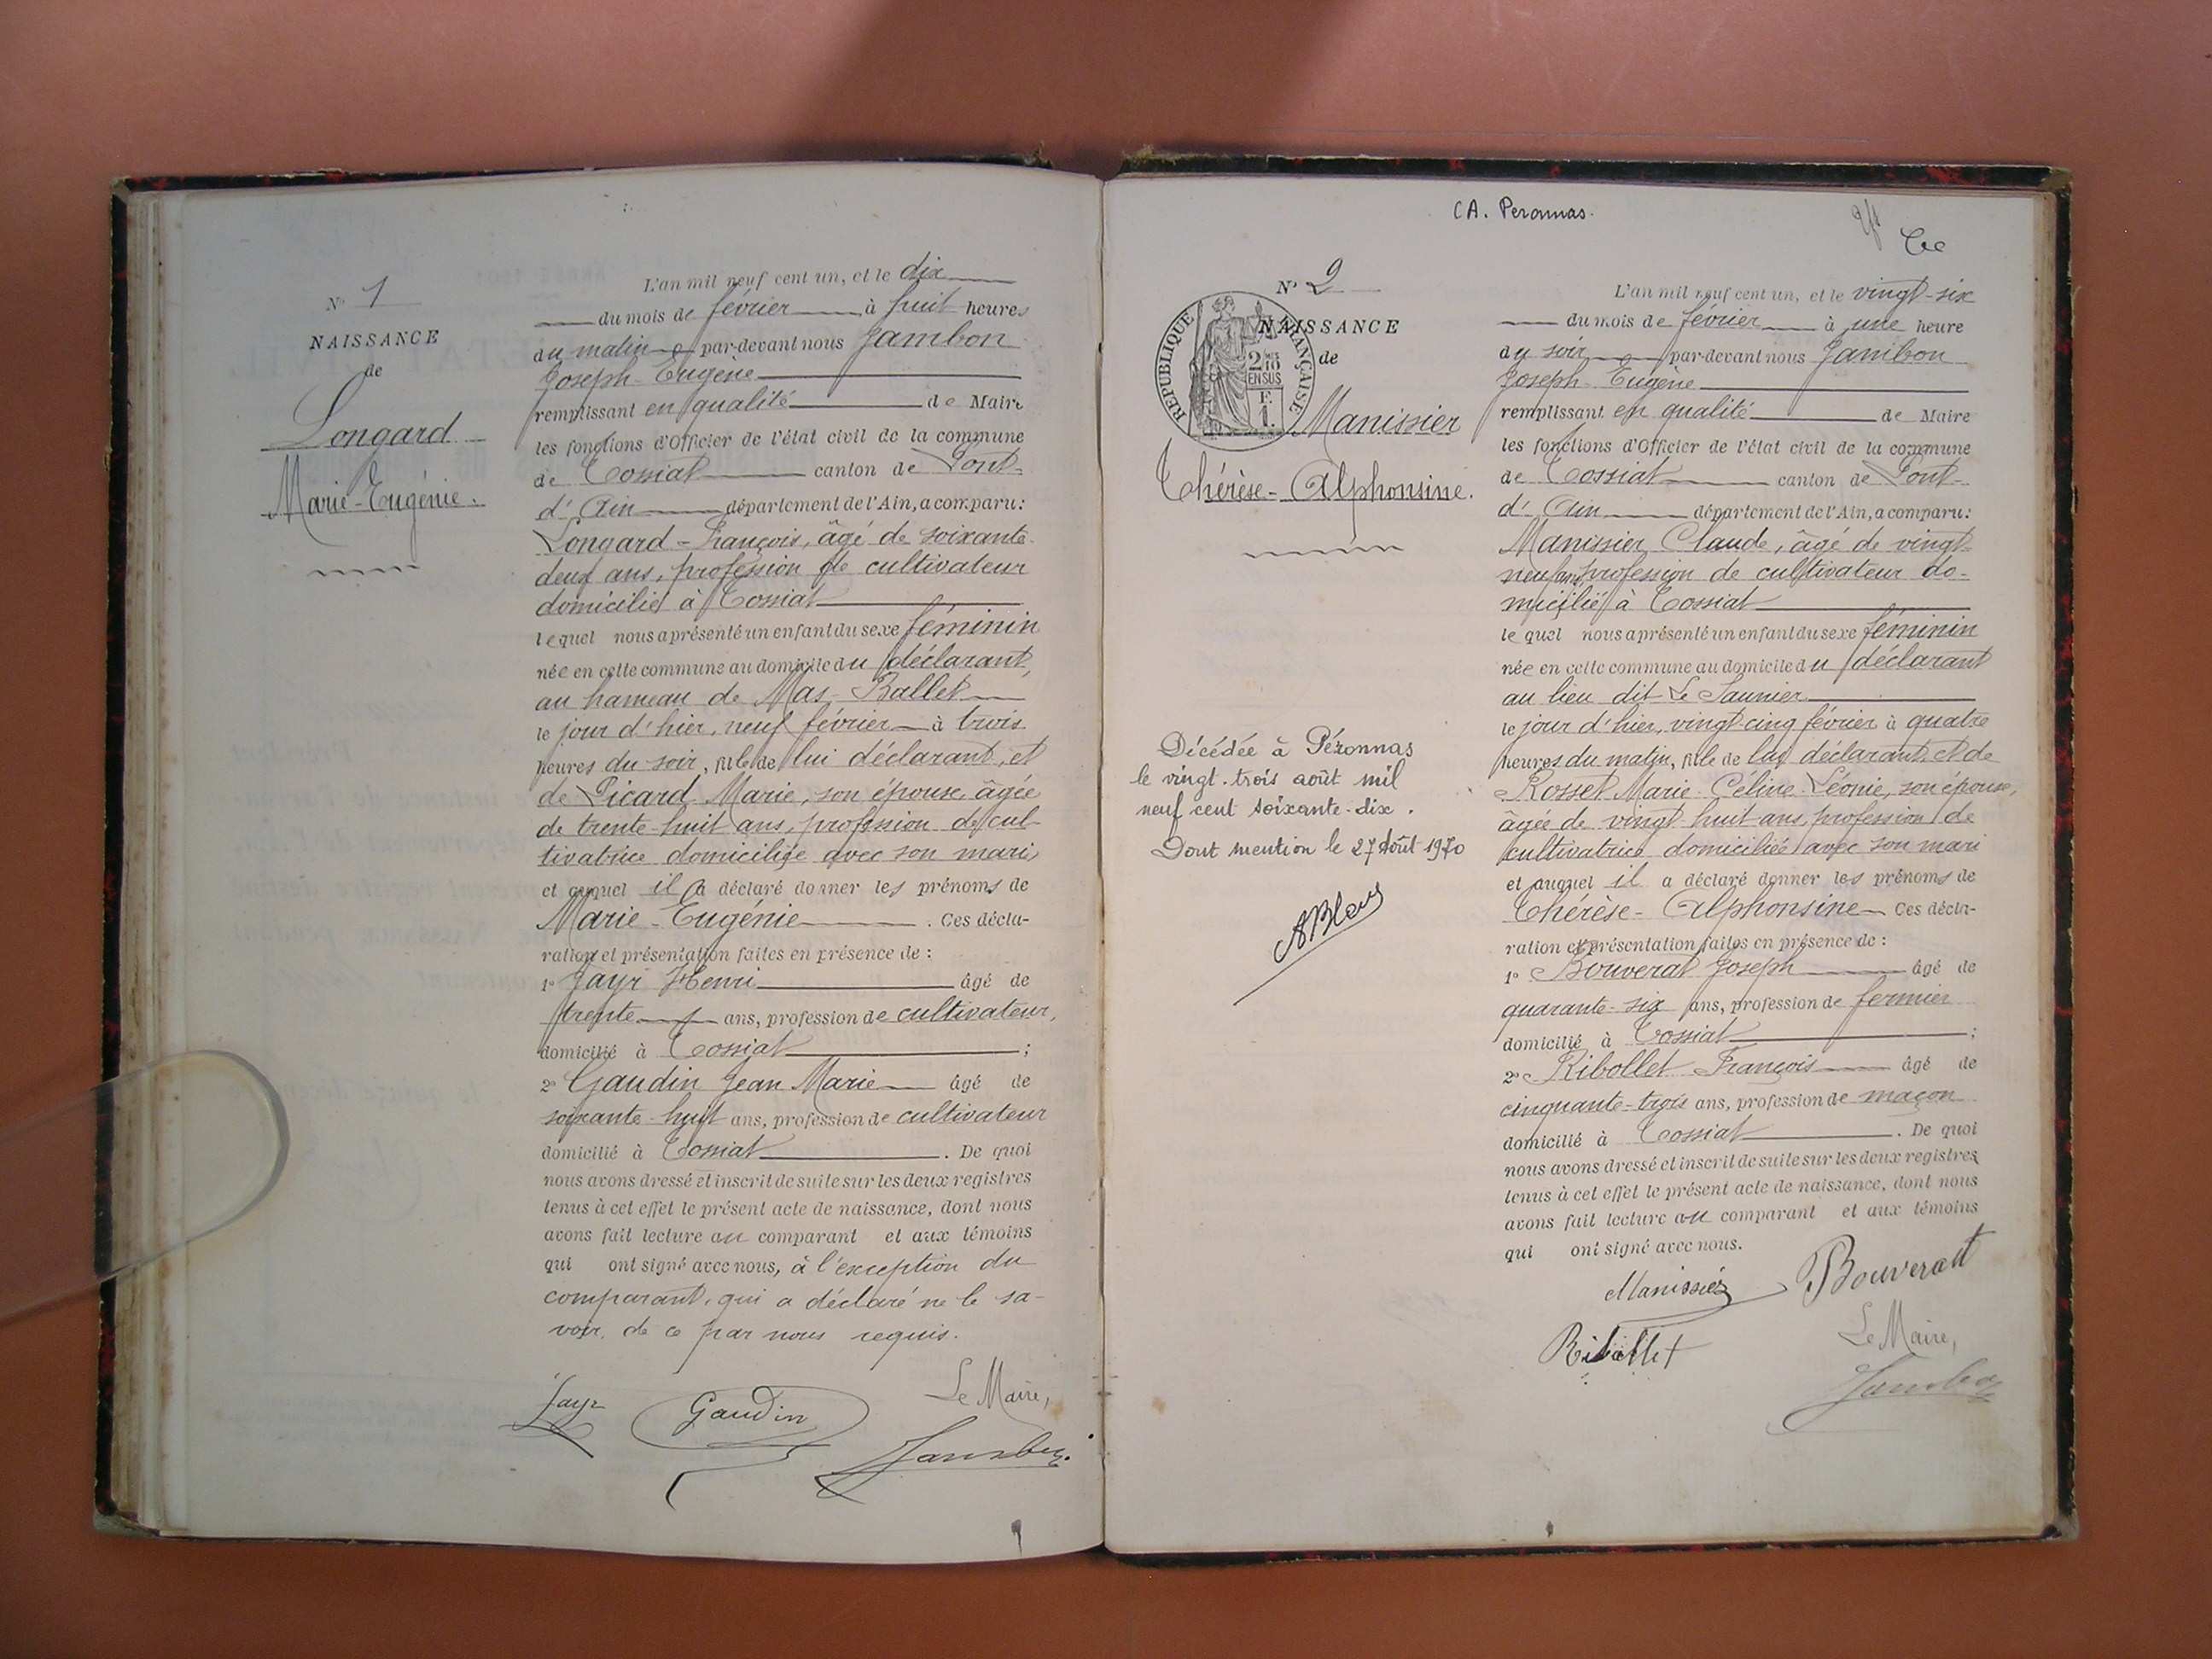 N° 1
NAISSANCE
de
Longard
Marie-Eugénie.
L'an mil neuf cent un, et le dix
du mois de février à huit heures
du matin par-devant nous Jambon
Joseph-Eugène
remplissant en qualité de Maire
les fonctions d'Officier de l'état civil de la commune
de Tossiat canton de Pont-
d'Ain département de l'Ain, a comparu:
Longard-François, âgé de soixante
deux ans, profession de cultivateur
domicilié à Tossiat
lequel nous a présenté un enfant du sexe féminin
née en cette commune au domicile du déclarant,
au hameau de Mas-Rallet
le jour d'hier, neuf février à trois
heures du soir, fille de lui déclarant, et
de Picard Marie, son épouse, âgée
de trente-huit ans, profession de cul-
tivatrice domiciliée avec son mari
et auquel il a déclaré donner les prénoms de
Marie-Eugénie. Ces décla-
ration et présentation faites en présence de :
1° Jayr Henri âgé de
trente ans, profession de cultivateur,
domicilié à Tossiat ;
2° Gaudin Jean Marie âgé de
soixante-huit ans, profession de cultivateur
domicilié à Tossiat. De quoi
nous avons dressé et inscrit de suite sur les deux registres
tenus à cet effet le présent acte de naissance, dont nous
avons fait lecture au comparant et aux témoins
qui ont signé avec nous, à l'exception du
comparant, qui a déclaré ne le sa-
voir, de ce par nous requis.
Le Maire,
Jayr Gaudin Jambon
CA. Peronnas.
N° 2
NAISSANCE
de
RÉPUBLIQUE FRANÇAISE
2/10 EN SUS
Manissier
Thérèse-Alphonsine.
Décédée à Péronnas
le vingt-trois août mil
neuf cent soixante-dix.
Dont mention le 27 Août 1970
L'an mil neuf cent un, et le vingt-six
du mois de février à une heure
du soir par-devant nous Jambon
Joseph-Eugène
remplissant en qualité de Maire
les fonctions d'Officier de l'état civil de la commune
de Tossiat canton de Pont-
d'Ain département de l'Ain, a comparu:
Manissier Claude, âgé de vingt-
neuf ans profession de cultivateur do-
micilié à Tossiat
lequel nous a présenté un enfant du sexe féminin
née en cette commune au domicile du déclarant
au lieu dit Le Saunier
le jour d'hier, vingt-cinq février à quatre
heures du matin, fille de lui déclarant et de
Rosset Marie-Céline-Léonie, son épouse,
âgée de vingt-huit ans, profession de
cultivatrice domiciliée avec son mari
et auquel il a déclaré donner les prénoms de
Thérèse-Alphonsine Ces décla-
ration et présentation faites en présence de :
1° Bouverat Joseph âgé de
quarante-six ans, profession de fermier
domicilié à Tossiat ;
2° Ribollet François âgé de
cinquante-trois ans, profession de maçon
domicilié à Tossiat. De quoi
nous avons dressé et inscrit de suite sur les deux registres
tenus à cet effet le présent acte de naissance, dont nous
avons fait lecture au comparant et aux témoins
qui ont signé avec nous.
Manissier Bouverat
Le Maire,
Ribollet
Jambon